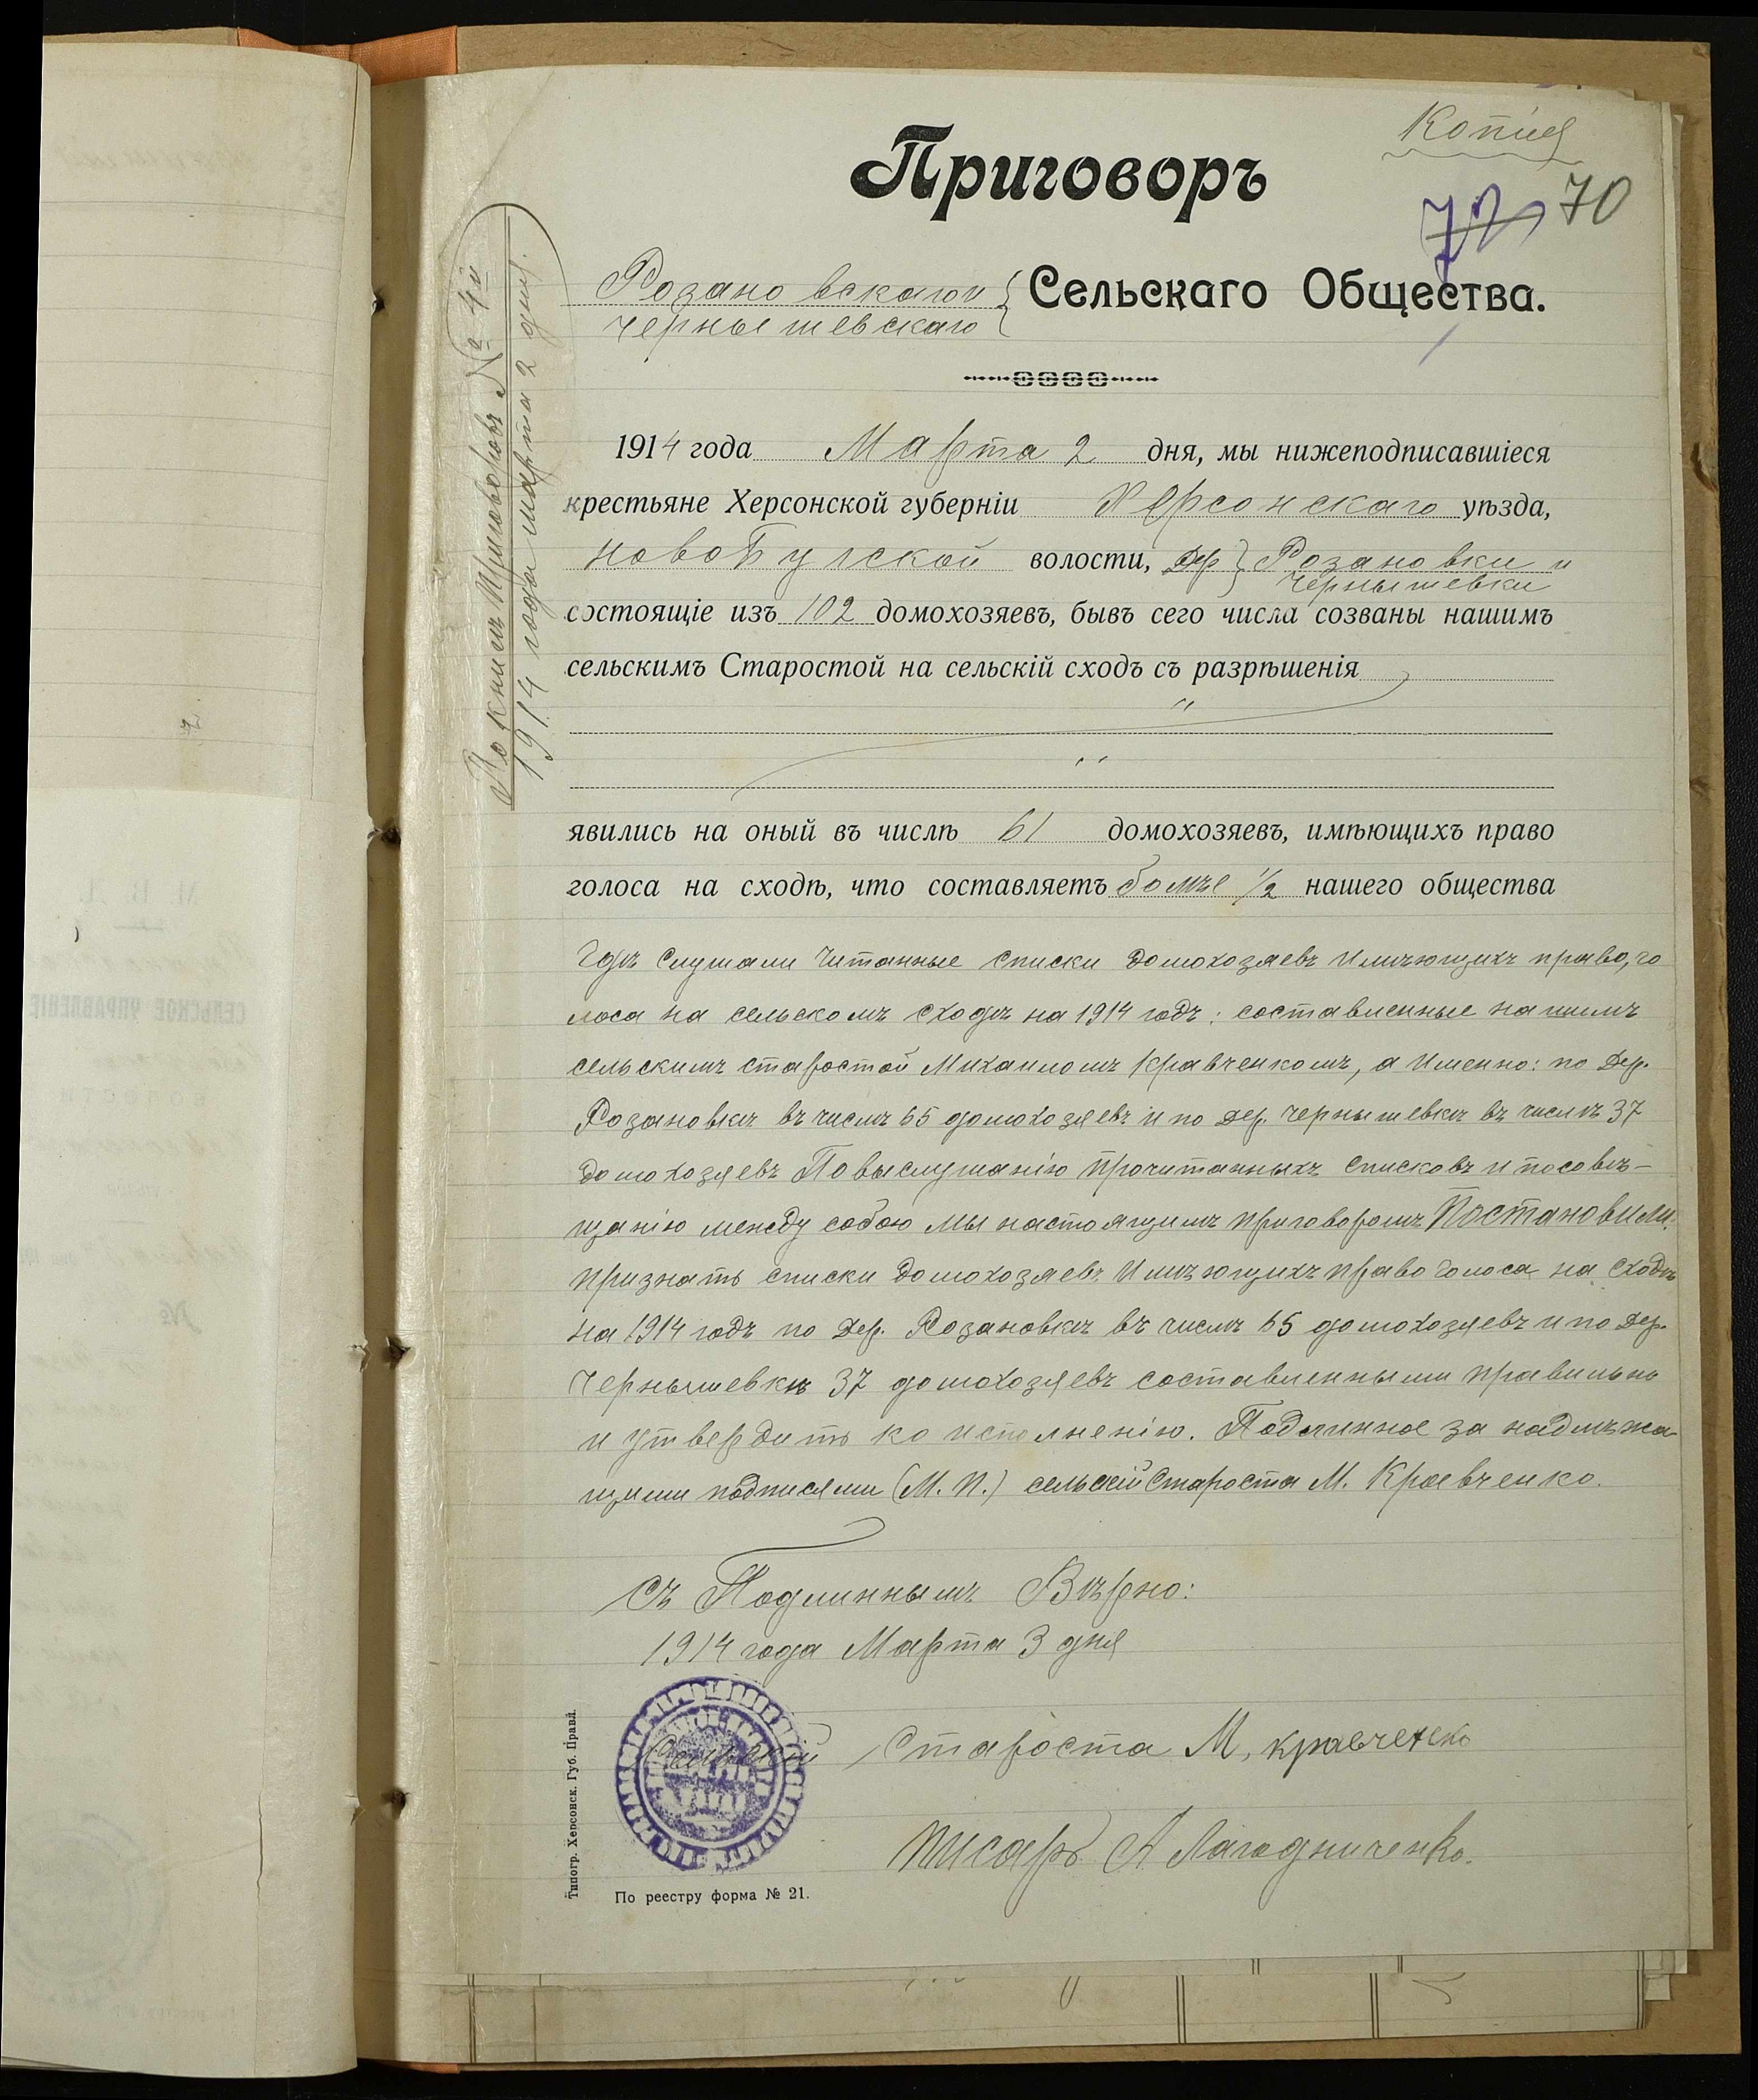 Копія
Приговоръ
72 70
Розановскаго и } Сельскаго Общества.
Чернышевскаго
По книгѣ Приговоровъ № 4й
1914 года марта 2 дня.
1914 года Марта 2 дня, мы нижеподписавшіеся
крестьяне Херсонской губерніи Херсонскаго уѣзда,
НовоБугской волости, Дер } Розановки и
Чернышевки
состоящіе изъ 102 домохозяевъ, бывъ сего числа созваны нашимъ
сельскимъ Старостой на сельскій сходъ съ разрѣшенія
"
"
явились на оный въ числѣ 61 домохозяевъ, имѣющихъ право
голоса на сходѣ, что составляетъ болѣе 1/2 нашего общества
Гдѣ слушали читанные списки домохозяевъ имѣющихъ право, го
лоса на сельскомъ сходѣ на 1914 годъ: составленные нашимъ
сельскимъ старостой Михаиломъ Кравченкомъ, а именно: по Дер.
Розановкѣ въ числѣ 65 домохозяевъ и по Дер. Чернышевкѣ въ числѣ 37
домохозяевъ По выслушанію прочитанныхъ списковъ и по совѣ-
щанію между собою мы настоящимъ приговоромъ Постановили:
признать списки домохозяевъ имѣющихъ право голоса на сходѣ
на 1914 годъ по Дер. Розановкѣ въ числѣ 65 домохозяевъ и по Дер.
Чернышевкѣ 37 домохозяевъ составленными правильно
и утвердить ко исполнению. Подлинное за надлѣжа
щими подписями (М. П.) сельскій Староста М. Кравченко.
Съ Подлиннымъ Вѣрно:
1914 года Марта 3 дня
Сельскій Староста М, кравченко
Писарь А Лагодниченко.
Типогр. Херсонск. Губ. Правл.
По реестру форма № 21.